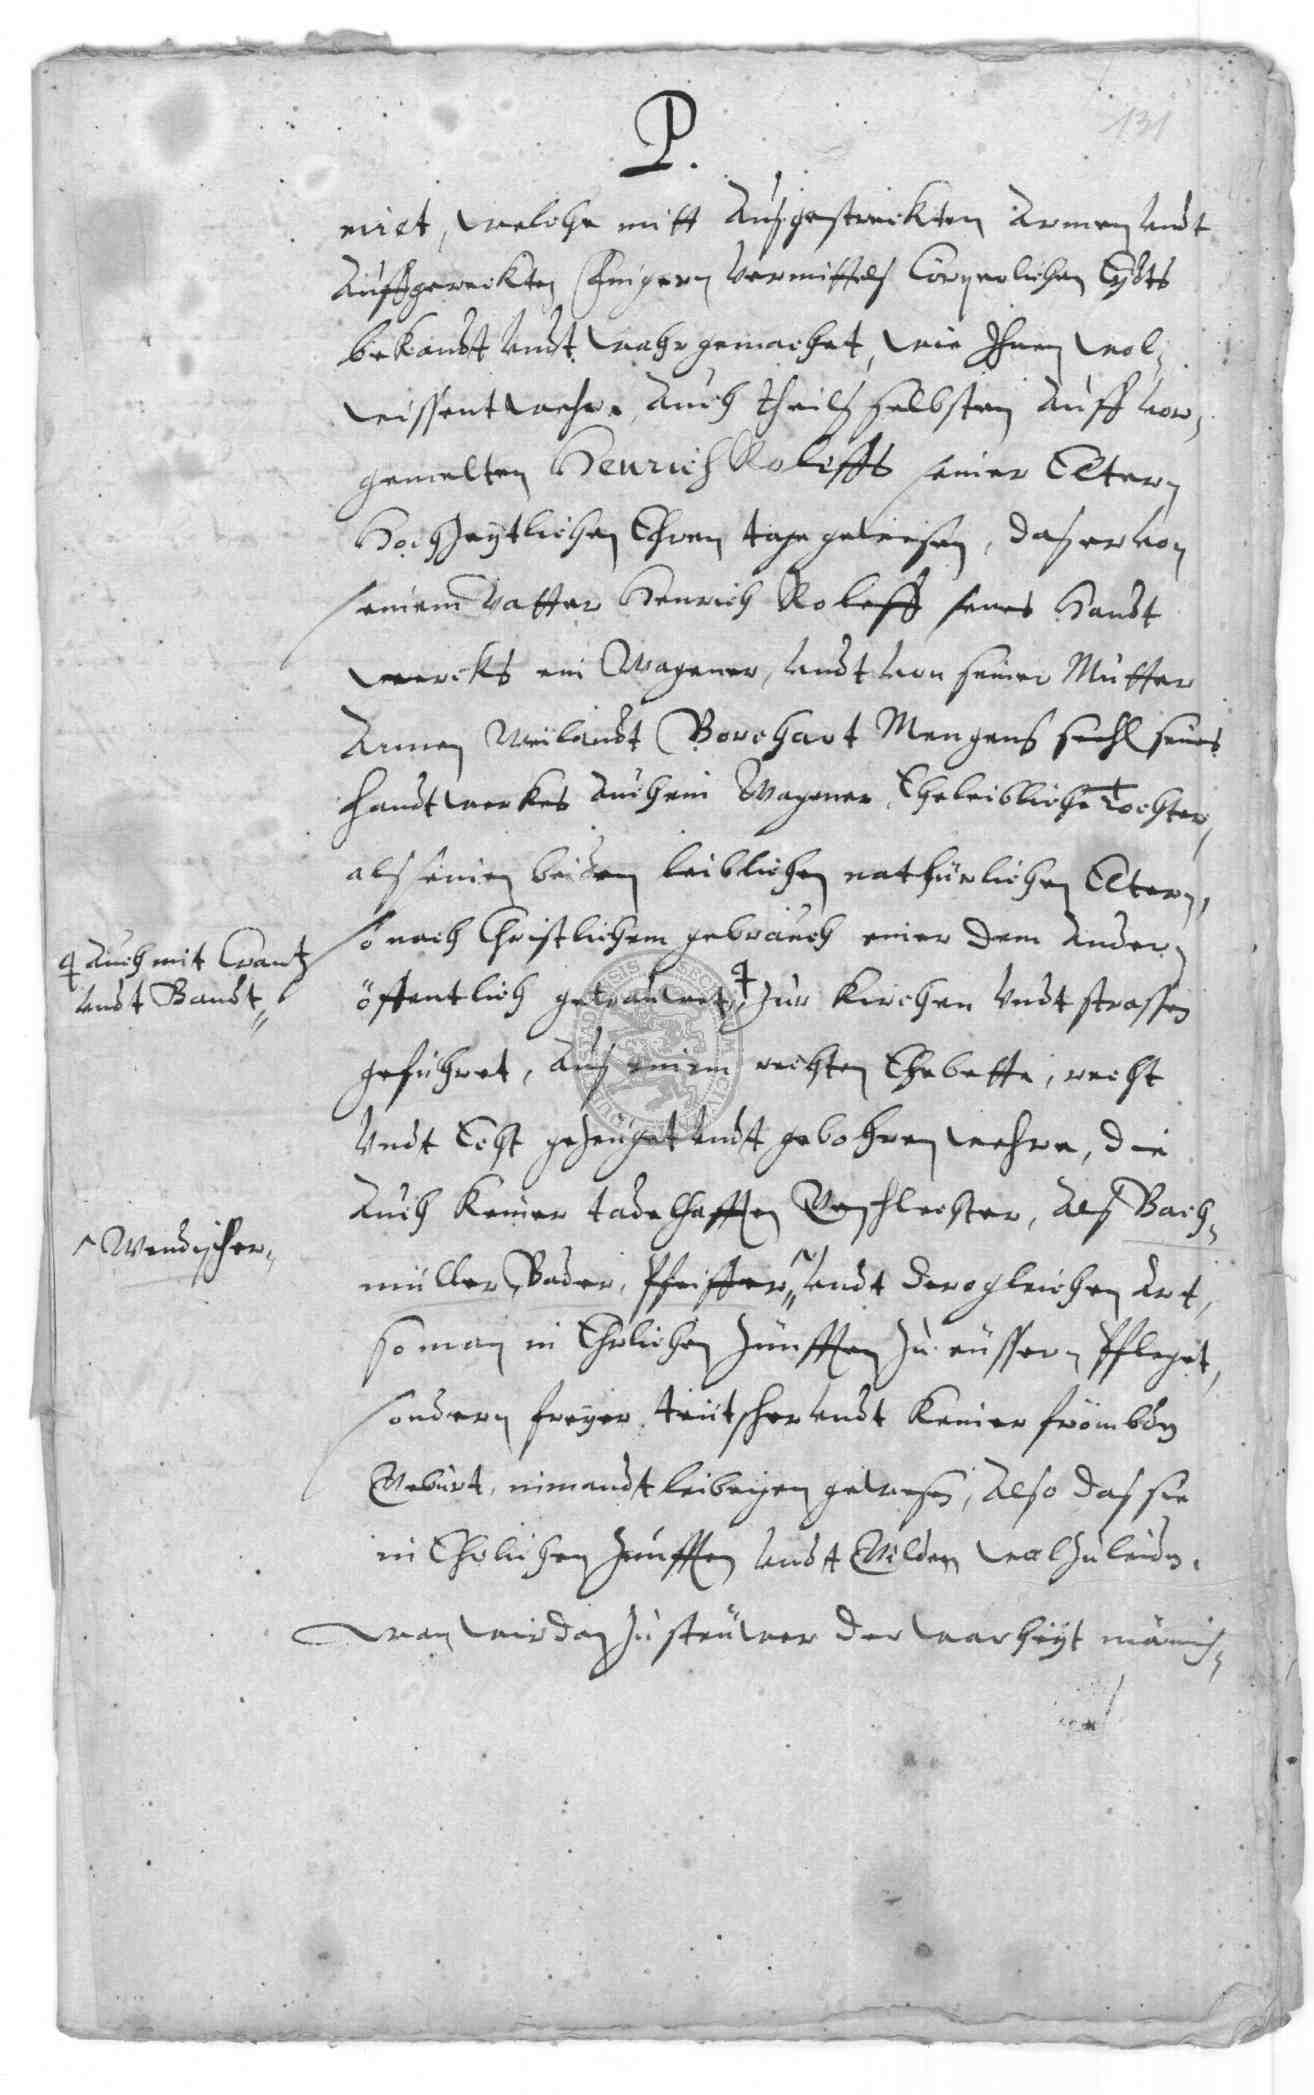 131
P.
niret, welche mitt Außgestreckten Armen undt
Auffgereckten Fingern vermittelst Cörperlichen Eydts
bekandt undt wahr gemachet, wie Ihnen wol
wissent wehre, Auch theilß selbsten Auff vor,
gemelten Henrich Roleffs seiner Eltern
Hochzeytlichen Ehren tage gewesen, daß er von
seinem Vatter Henrich Roleff seines Handt
wercks ein Wagener, undt von seiner Mutter
Annen Weilandt Borchart Mengens sehl seines
handtwerkes Auch ein Wagener Eheleibliche Tochter,
alß seinen beiden leiblichen nathürlichen Eltern,
so nach Christlichem gebrauch einer dem Andern
öffentlich getrauwet, zur Kirchen undt strassen
geführet, Auß einem rechten Ehebette, recht
undt Echt gezeuget undt gebohren wehre, die
Auch keiner tadelhafften Geschlechter, Alß Bach,
müller, Bader, Pfeiffer, undt derogleichen Art,
so man in Ehrlichen Zünfften zu eüssern Pfleget,
sondern freyer teütscher undt keiner frömbden
Geburt, nimandt leibeigen gewesen, Also daß sie
in Ehrlichen Zünfften undt Gilden wol zu leiden.
Wan wir dan zu steüwer der warheyt männich,
Auch mit Crantz
undt Bandt
Wendischer